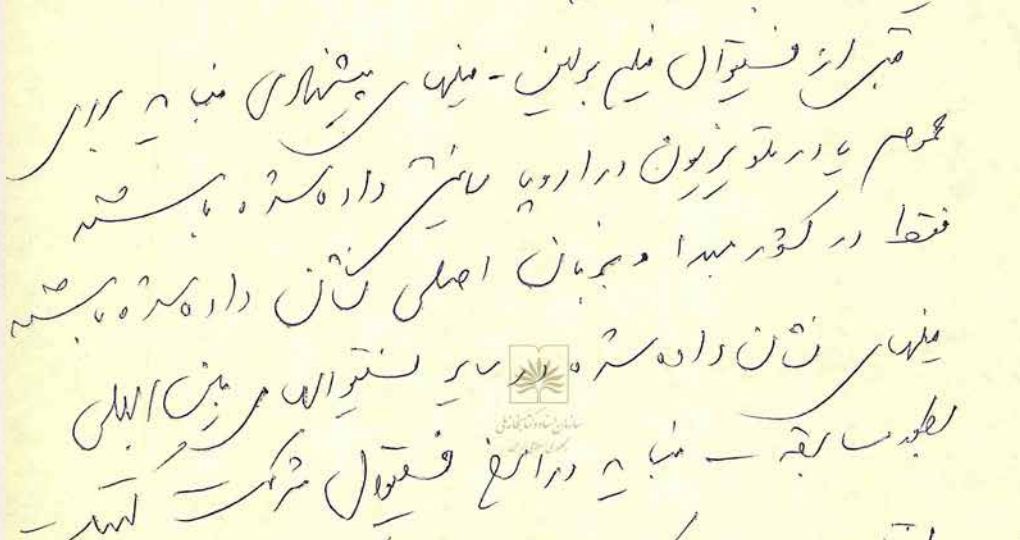 قبل از فستیوال فیلم برلین - فیلمهای پیشنهادی نباید برای
عموم یا در تلویزیون در اروپا نمایش داده شده باشند
فقط در کشور مبدا و بزبان اصلی نشان داده شده باشند
فیلمهای نشان داده شده در سایر فستیوالهای بین المللی
بطور مسابقه - نباید در این فستیوال شرکت کنند
سازمان اسناد و کتابخانه ملی
جمهوری اسلامی ایران